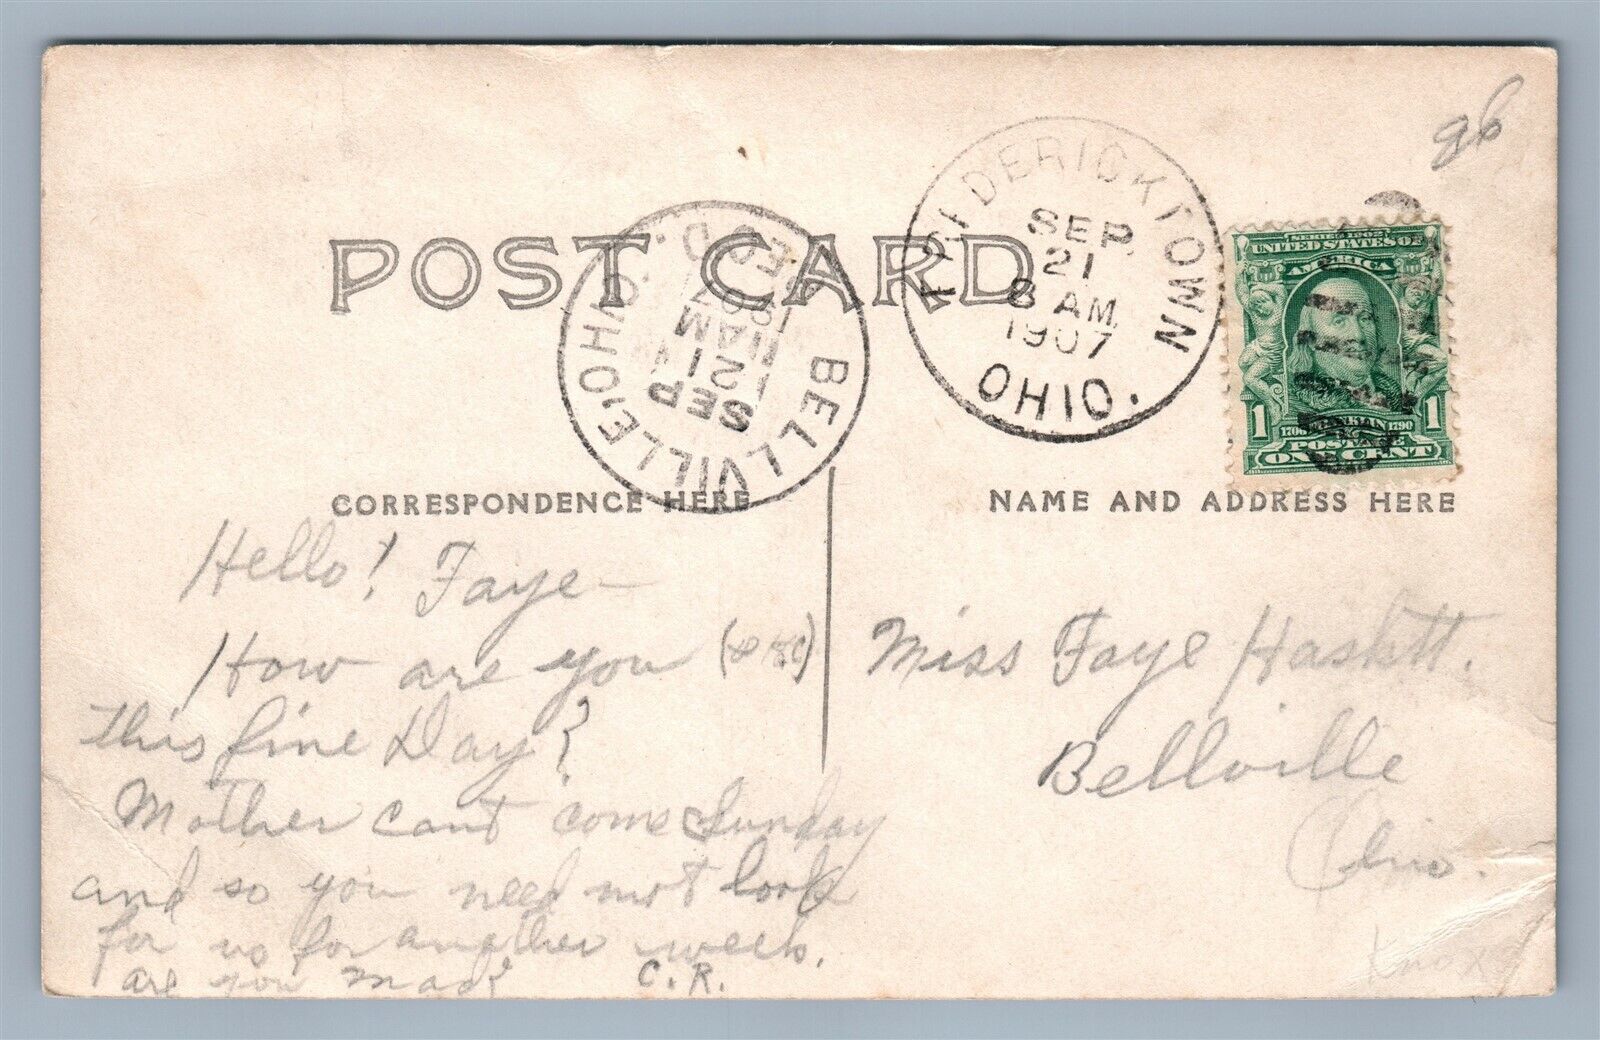 96
POST CARD
FREDERICKTOWN
SEP
21
8 AM
1907
OHIO.
BELLVILLE OHIO.
SEP
21
11 AM
1907
REC'D.
SERIES 1902
UNITED STATES OF
AMERICA
1 1
1706 FRANKLIN 1790
POSTAGE
ONE CENT
CORRESPONDENCE HERE
NAME AND ADDRESS HERE
Hello! Faye—
How are you
This fine Day?
Mother cant come Sunday
and so you need not look
for us for another week.
are you mad? C.R.
Miss Faye Haskett.
Bellville
Ohio.
Knox